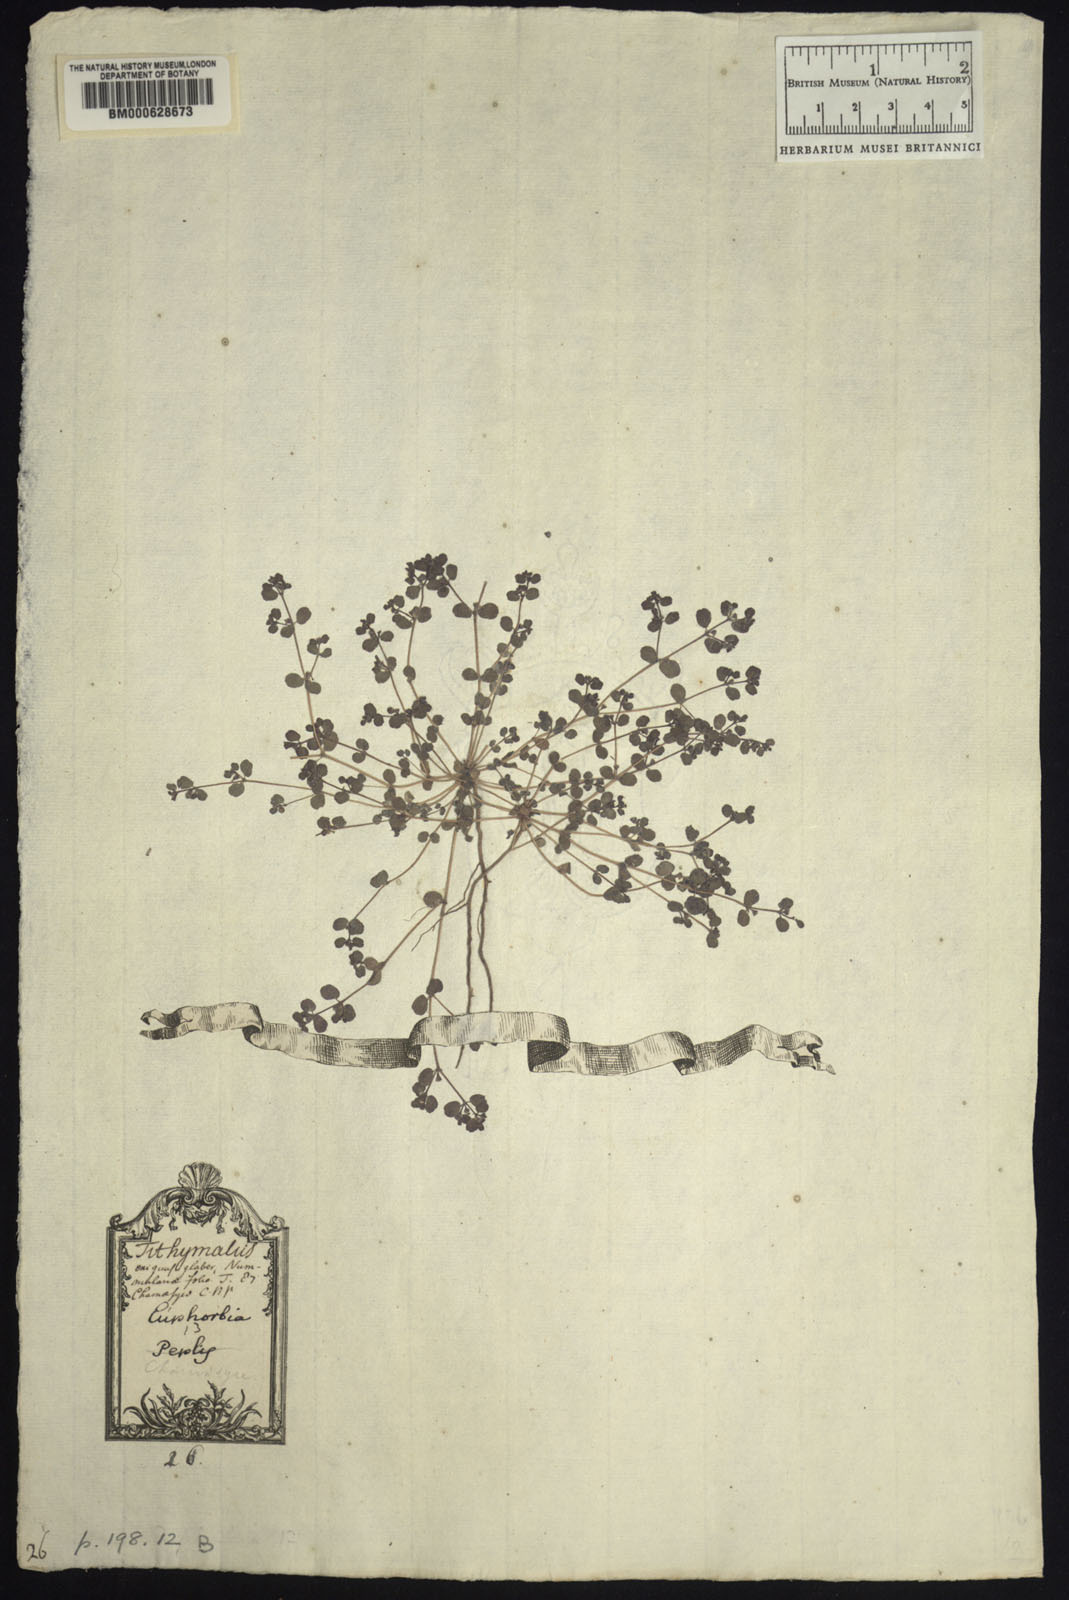 THE NATURAL HISTORY MUSEUM, LONDON
DEPARTMENT OF BOTANY
BM000628673
1 2
BRITISH MUSEUM (NATURAL HISTORY)
1 2 3 4 5
HERBARIUM MUSEI BRITANNICI
Tithymalus
glaber, Num-
folio J.
Euphorbia
13
Peplis
Chamæsyce
26.
26 p. 198. 12 B